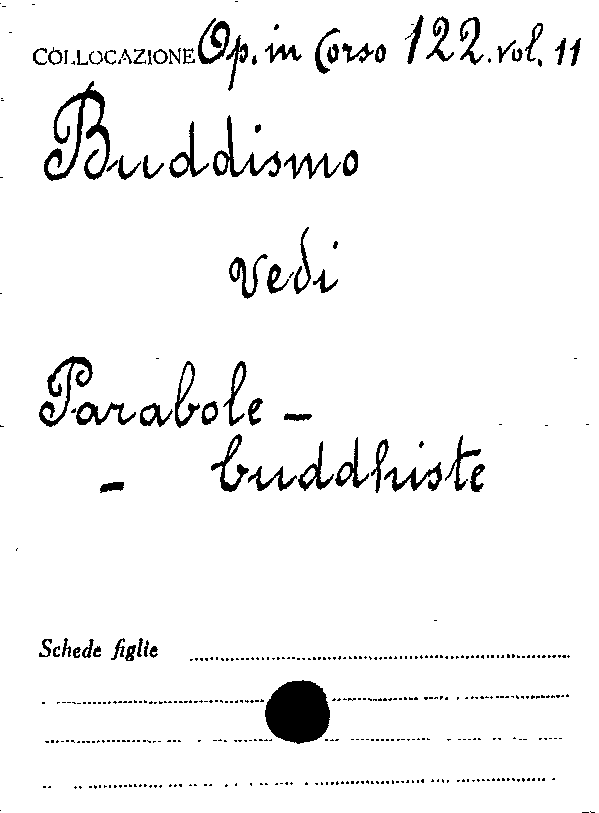 COLLOCAZIONE Op. in Corso 122. vol. 11
Buddismo
vedi
Parabole -
- buddhiste
Schede figlie